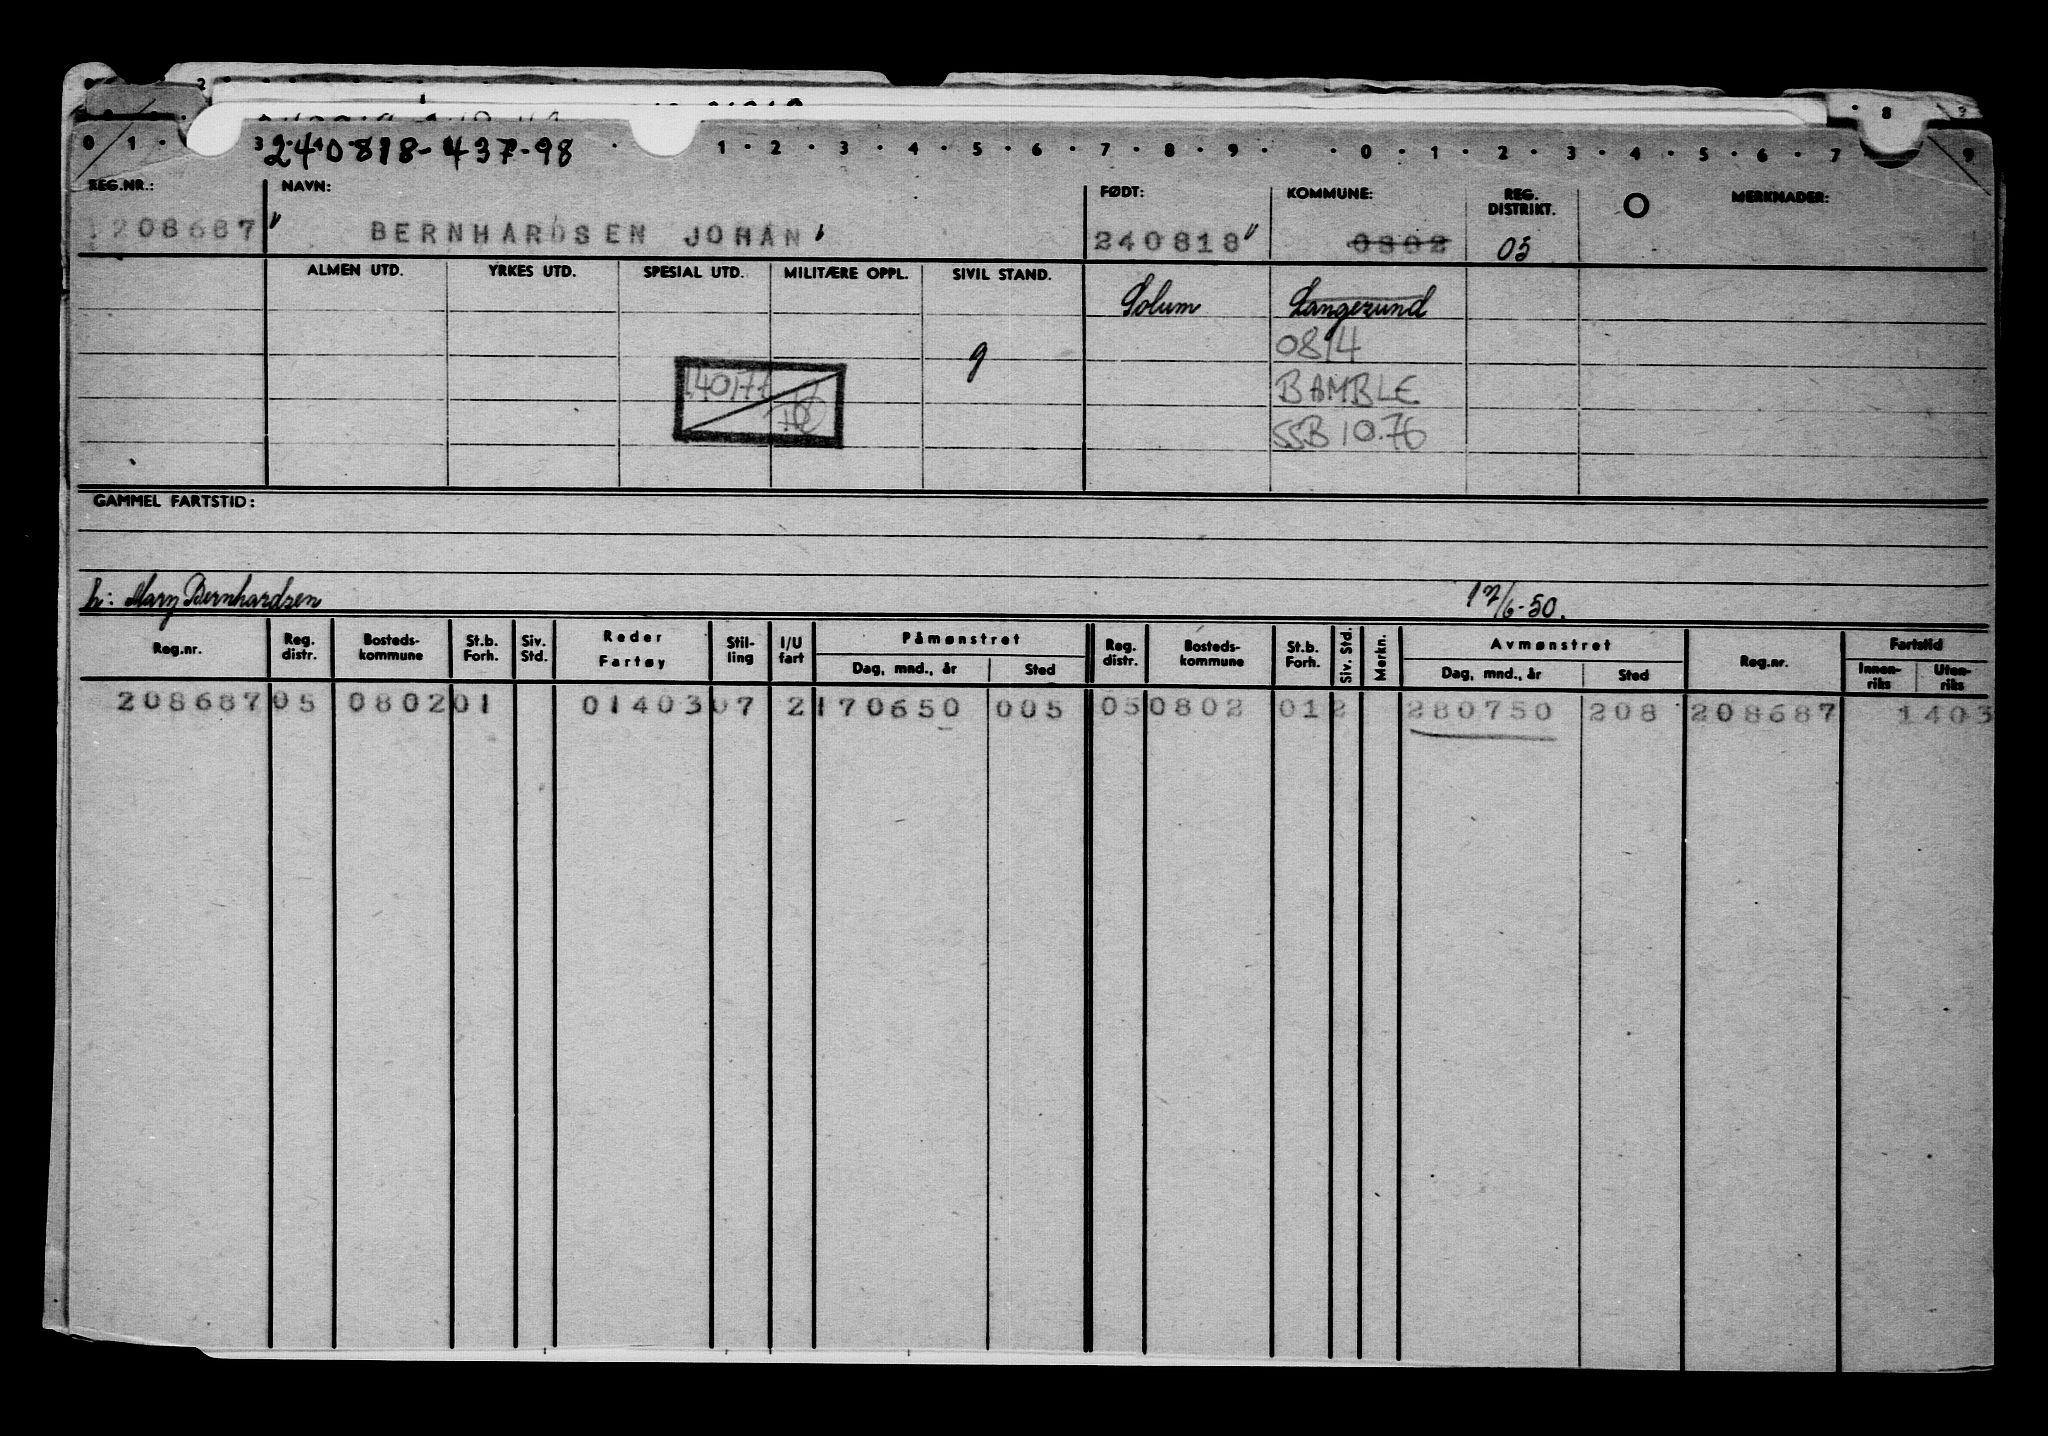 240818-437-98
0 1 3 1 2 3 4 5 6 7 8 9 0 1 2 3 4 5 6 7 8 9
REG.NR.: NAVN: FØDT: KOMMUNE: REG. DISTRIKT. MERKNADER:
208687 BERNHARDSEN JOHAN 240818 0802 05
ALMEN UTD. YRKES UTD. SPESIAL UTD. MILITÆRE OPPL. SIVIL STAND.
Solum Langesund
g 0814
BAMBLE
SSB 10.76
GAMMEL FARTSTID:
h: Mary Bernhardsen 17/6-50.
Reg.nr. Reg. distr. Bosteds-kommune St.b. Forh. Siv. Std. Reder Fartøy Stil-ling I/U fart Påmønstret Reg. distr. Bosteds-kommune St.b. Forh. Siv. Std. Merkn. Avmønstret Reg.nr. Fartstid
Dag, mnd., år Sted Dag, mnd., år Sted Innen-riks Uten-riks
208687 05 0802 01 01403 07 2 170650 005 05 0802 01 2 280750 208 208687 1403